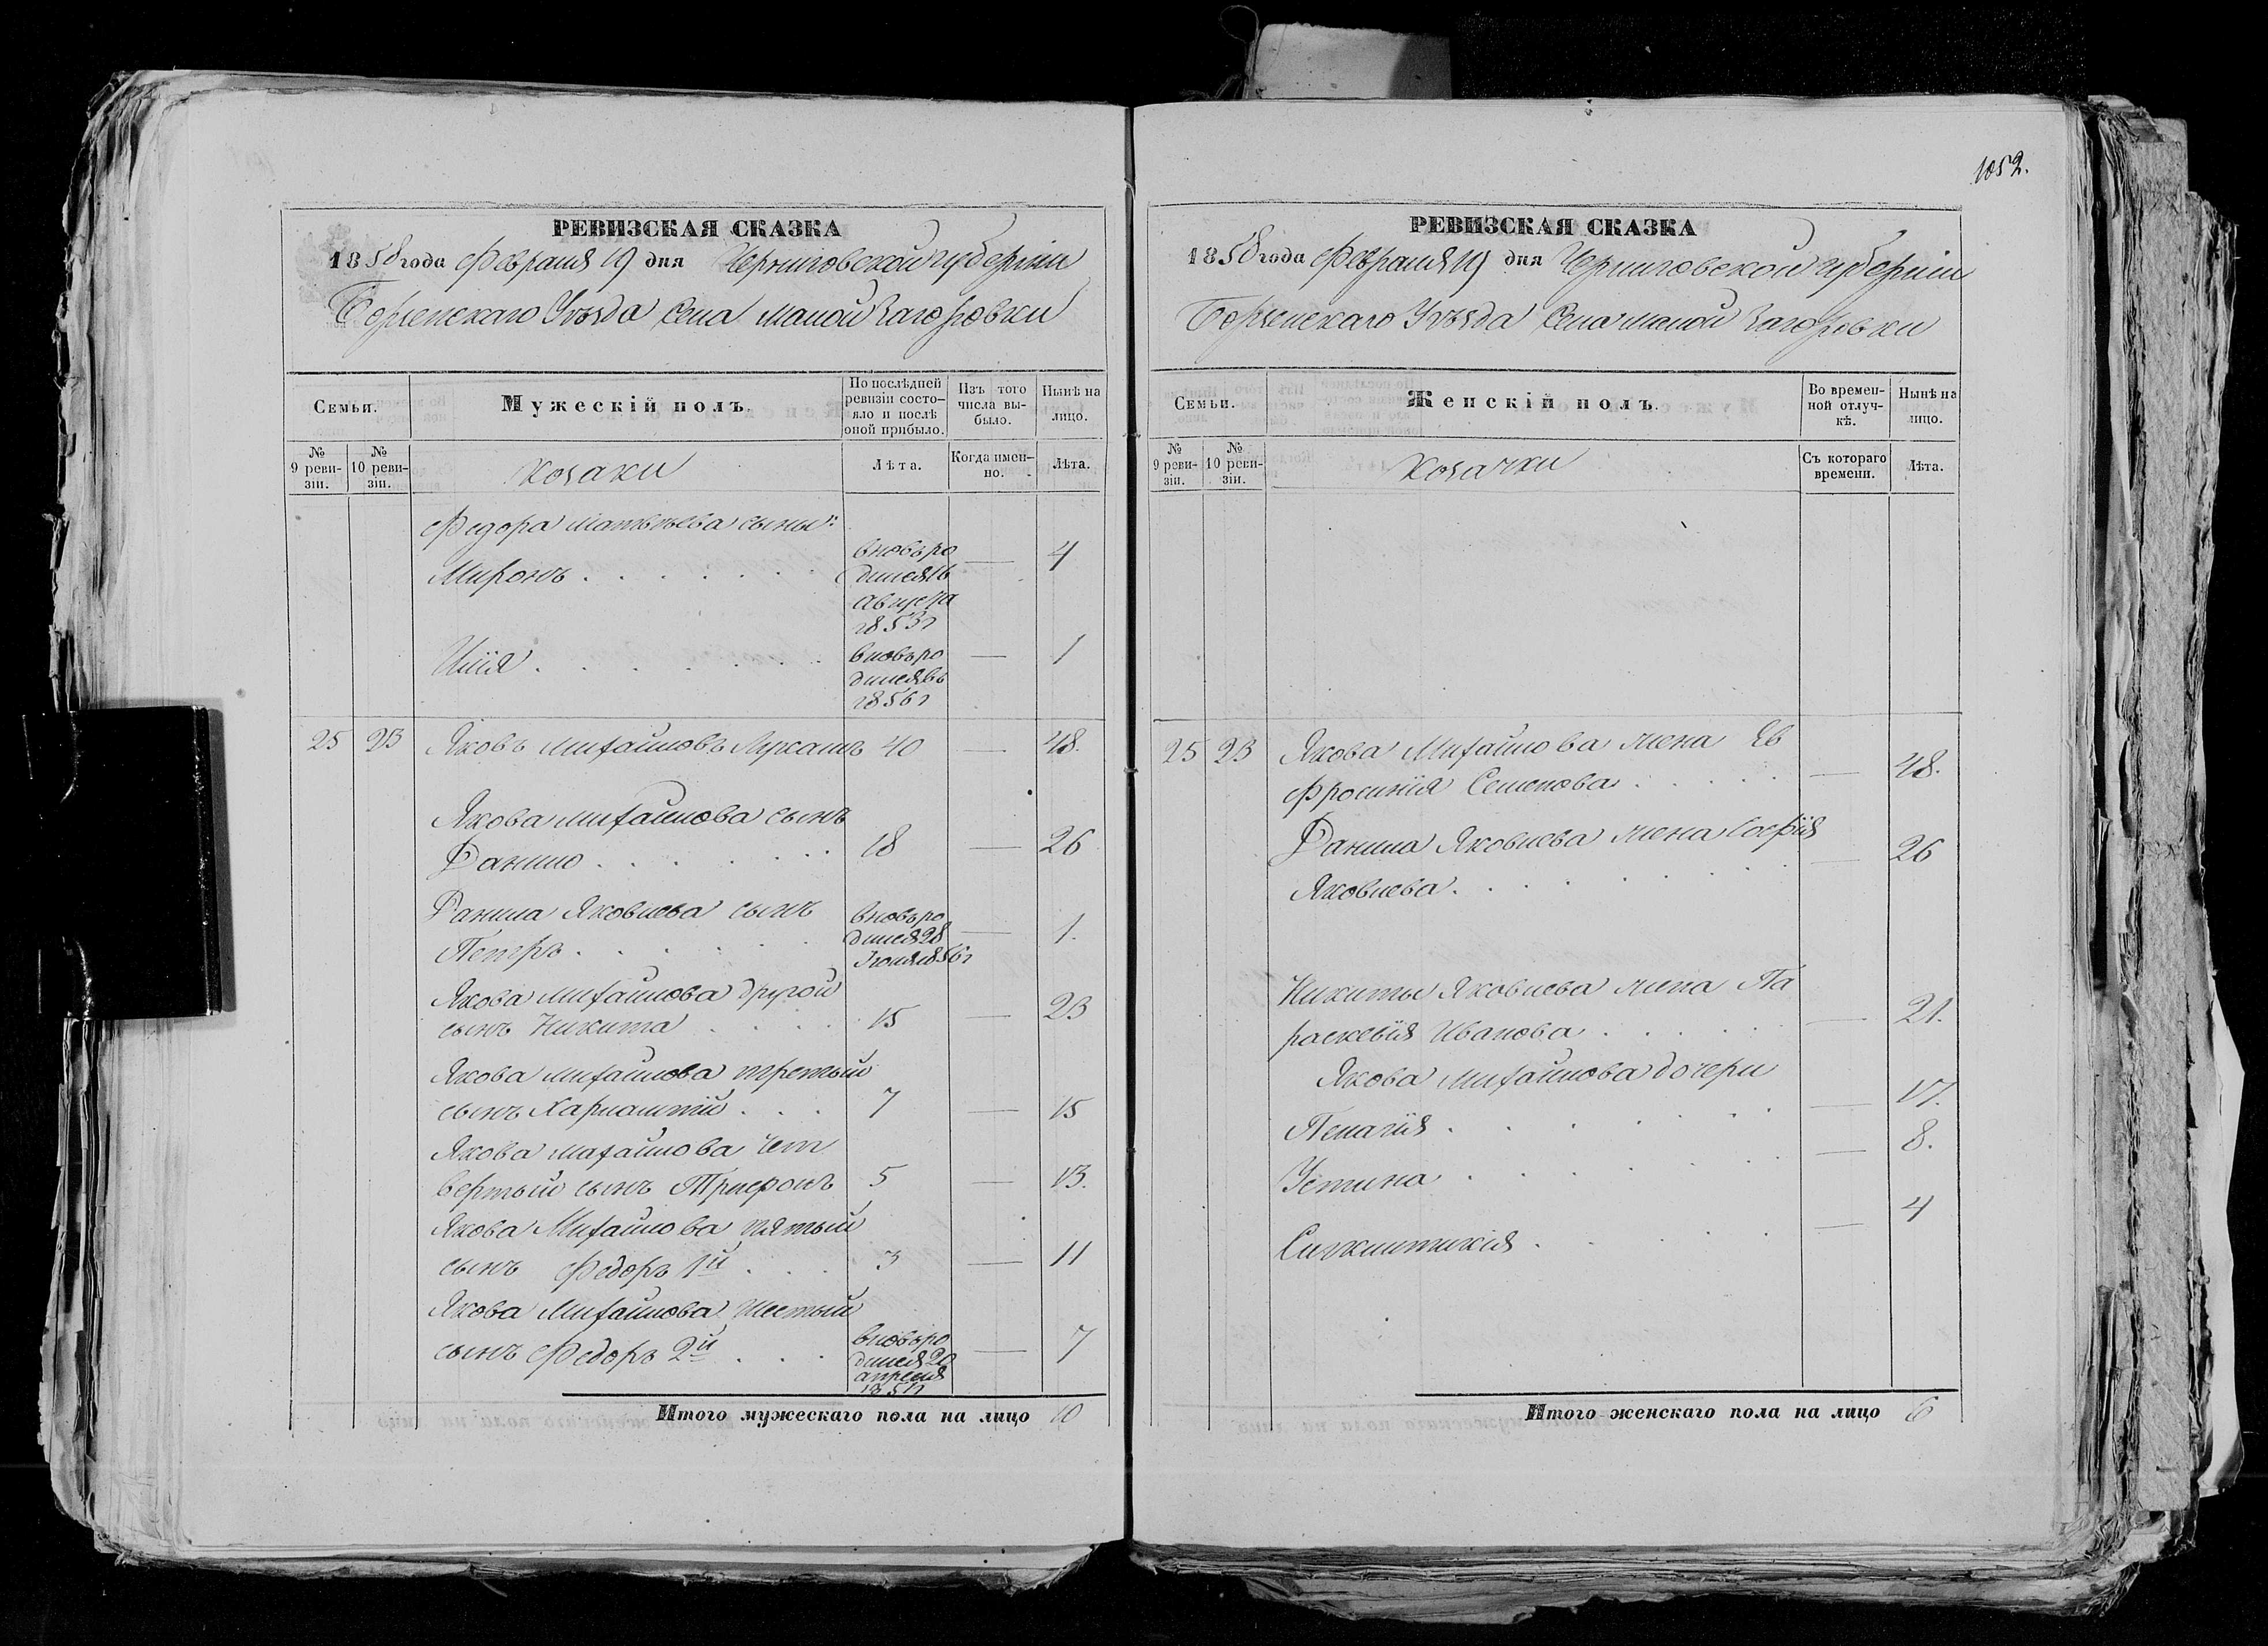 1052.
РЕВИЗСКАЯ СКАЗКА
1858 года Февраля 19 дня Черниговской губерніи
Борзенскаго Уѣзда Села Малой Загоровки
Семьи.
Мужескій полъ.
По послѣдней ревизіи состо-
яло и послѣ оной прибыло.
Изъ того числа вы-
было.
Нынѣ на лицо.
№ 9 реви-
зіи.
№ 10 реви-
зіи.
козаки
Лѣта.
Когда имен-
но.
Лѣта.
Федора Матвѣева сыны:
Миронъ . . . . . . вновь ро
дился 16
Августа
1853 г — 4
Илія . . . . . . . вновь ро
дился въ
1856 г — 1
25 23 Яковъ Михайловъ Лукашъ 40 — 48.
Якова Михайлова сынъ
Данило . . . . . . . 18 — 26
Данила Яковлева сынъ
Петръ . . . . . . вновь ро
дился 28
Іюля 1856 г — 1.
Якова Михайлова другой
сынъ Никита . . . . 15 — 23
Якова Михайлова третьий
сынъ Харлампій . . . 7 — 15
Якова Михайлова чет
вертый сынъ Трифонъ 5 — 13.
Якова Михайлова пятый
сынъ Федоръ 1й . . . 3 — 11
Якова Михайлова шестый
сынъ Федоръ 2й . . . вновь ро
дился 20
апреля
1851 г — 7
Итого мужескаго пола на лицо 10
РЕВИЗСКАЯ СКАЗКА
1858 года Февраля 19 дня Черниговской губерніи
Борзенскаго Уѣзда Села Малой Загоровки
Семьи.
Женскій полъ.
Во времен-
ной отлуч-
кѣ.
Нынѣ на лицо.
№ 9 реви-
зіи.
№ 10 реви-
зіи.
козачки
Съ котораго времени.
Лѣта.
25 23 Якова Михайлова жена Ев
фросинія Семенова . . . . — 48.
Данила Яковлева жена Софія
Яковлева . . . . . . . — 26
Никиты Яковлева жена Па
раскевія Иванова . . . . — 21.
Якова Михайлова дочери
Пелагія . . . . . — 17.
Устина . . . . . . — 8.
Синклитикія . . . . . — 4
Итого женскаго пола на лицо 6